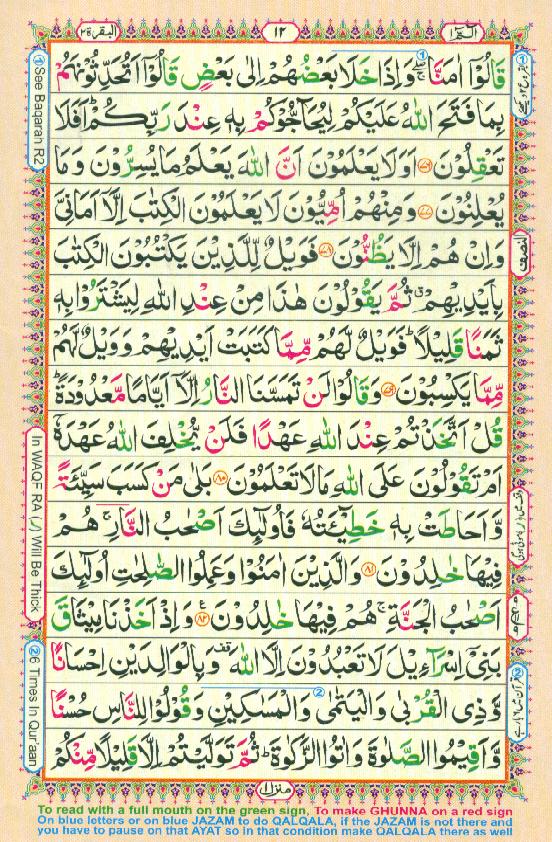 البقرة ٢
١٢
الٓمّٓ ١
قَالُوْۤا اٰمَنَّا ۖۚ وَاِذَا خَلَا بَعْضُهُمْ اِلٰى بَعْضٍ قَالُوْۤا اَتُحَدِّثُوْنَهُمْ
بِمَا فَتَحَ اللّٰهُ عَلَيْكُمْ لِيُحَآجُّوْكُمْ بِهٖ عِنْدَ رَبِّكُمْ ؕ اَفَلَا
تَعْقِلُوْنَ ﴿۷۶﴾ اَوَلَا يَعْلَمُوْنَ اَنَّ اللّٰهَ يَعْلَمُ مَا يُسِرُّوْنَ وَمَا
يُعْلِنُوْنَ ﴿۷۷﴾ وَمِنْهُمْ اُمِّيُّوْنَ لَا يَعْلَمُوْنَ الْكِتٰبَ اِلَّاۤ اَمَانِىَّ
وَاِنْ هُمْ اِلَّا يَظُنُّوْنَ ﴿۷۸﴾ فَوَيْلٌ لِّلَّذِيْنَ يَكْتُبُوْنَ الْكِتٰبَ
بِاَيْدِيْهِمْ ۗ ثُمَّ يَقُوْلُوْنَ هٰذَا مِنْ عِنْدِ اللّٰهِ لِيَشْتَرُوْا بِهٖ
ثَمَنًا قَلِيْلًا ؕ فَوَيْلٌ لَّهُمْ مِّمَّا كَتَبَتْ اَيْدِيْهِمْ وَوَيْلٌ لَّهُمْ
مِّمَّا يَكْسِبُوْنَ ﴿۷۹﴾ وَقَالُوْا لَنْ تَمَسَّنَا النَّارُ اِلَّاۤ اَيَّامًا مَّعْدُوْدَةً ؕ
قُلْ اَتَّخَذْتُمْ عِنْدَ اللّٰهِ عَهْدًا فَلَنْ يُّخْلِفَ اللّٰهُ عَهْدَهٗۤ
اَمْ تَقُوْلُوْنَ عَلَى اللّٰهِ مَا لَا تَعْلَمُوْنَ ﴿۸۰﴾ بَلٰى مَنْ كَسَبَ سَيِّئَةً
وَّاَحَاطَتْ بِهٖ خَطِيْٓـَٔتُهٗ فَاُولٰٓئِكَ اَصْحٰبُ النَّارِ ۚ هُمْ
فِيْهَا خٰلِدُوْنَ ﴿۸۱﴾ وَالَّذِيْنَ اٰمَنُوْا وَعَمِلُوا الصّٰلِحٰتِ اُولٰٓئِكَ
اَصْحٰبُ الْجَنَّةِ ۚ هُمْ فِيْهَا خٰلِدُوْنَ ﴿۸۲﴾ وَاِذْ اَخَذْنَا مِيْثَاقَ
بَنِىْۤ اِسْرَآءِيْلَ لَا تَعْبُدُوْنَ اِلَّا اللّٰهَ وَبِالْوَالِدَيْنِ اِحْسَانًا
وَّذِى الْقُرْبٰى وَالْيَتٰمٰى وَالْمَسٰكِيْنِ وَقُوْلُوْا لِلنَّاسِ حُسْنًا
وَّاَقِيْمُوا الصَّلٰوةَ وَاٰتُوا الزَّكٰوةَ ؕ ثُمَّ تَوَلَّيْتُمْ اِلَّا قَلِيْلًا مِّنْكُمْ
النصف
① See Baqarah R2
In WAQF RA (ر) Will Be Thick
② 6 Times In Qur'aan
منزل ١
To read with a full mouth on the green sign, To make GHUNNA on a red sign
On blue letters or on blue JAZAM to do QALQALA, if the JAZAM is not there and
you have to pause on that AYAT so in that condition make QALQALA there as well